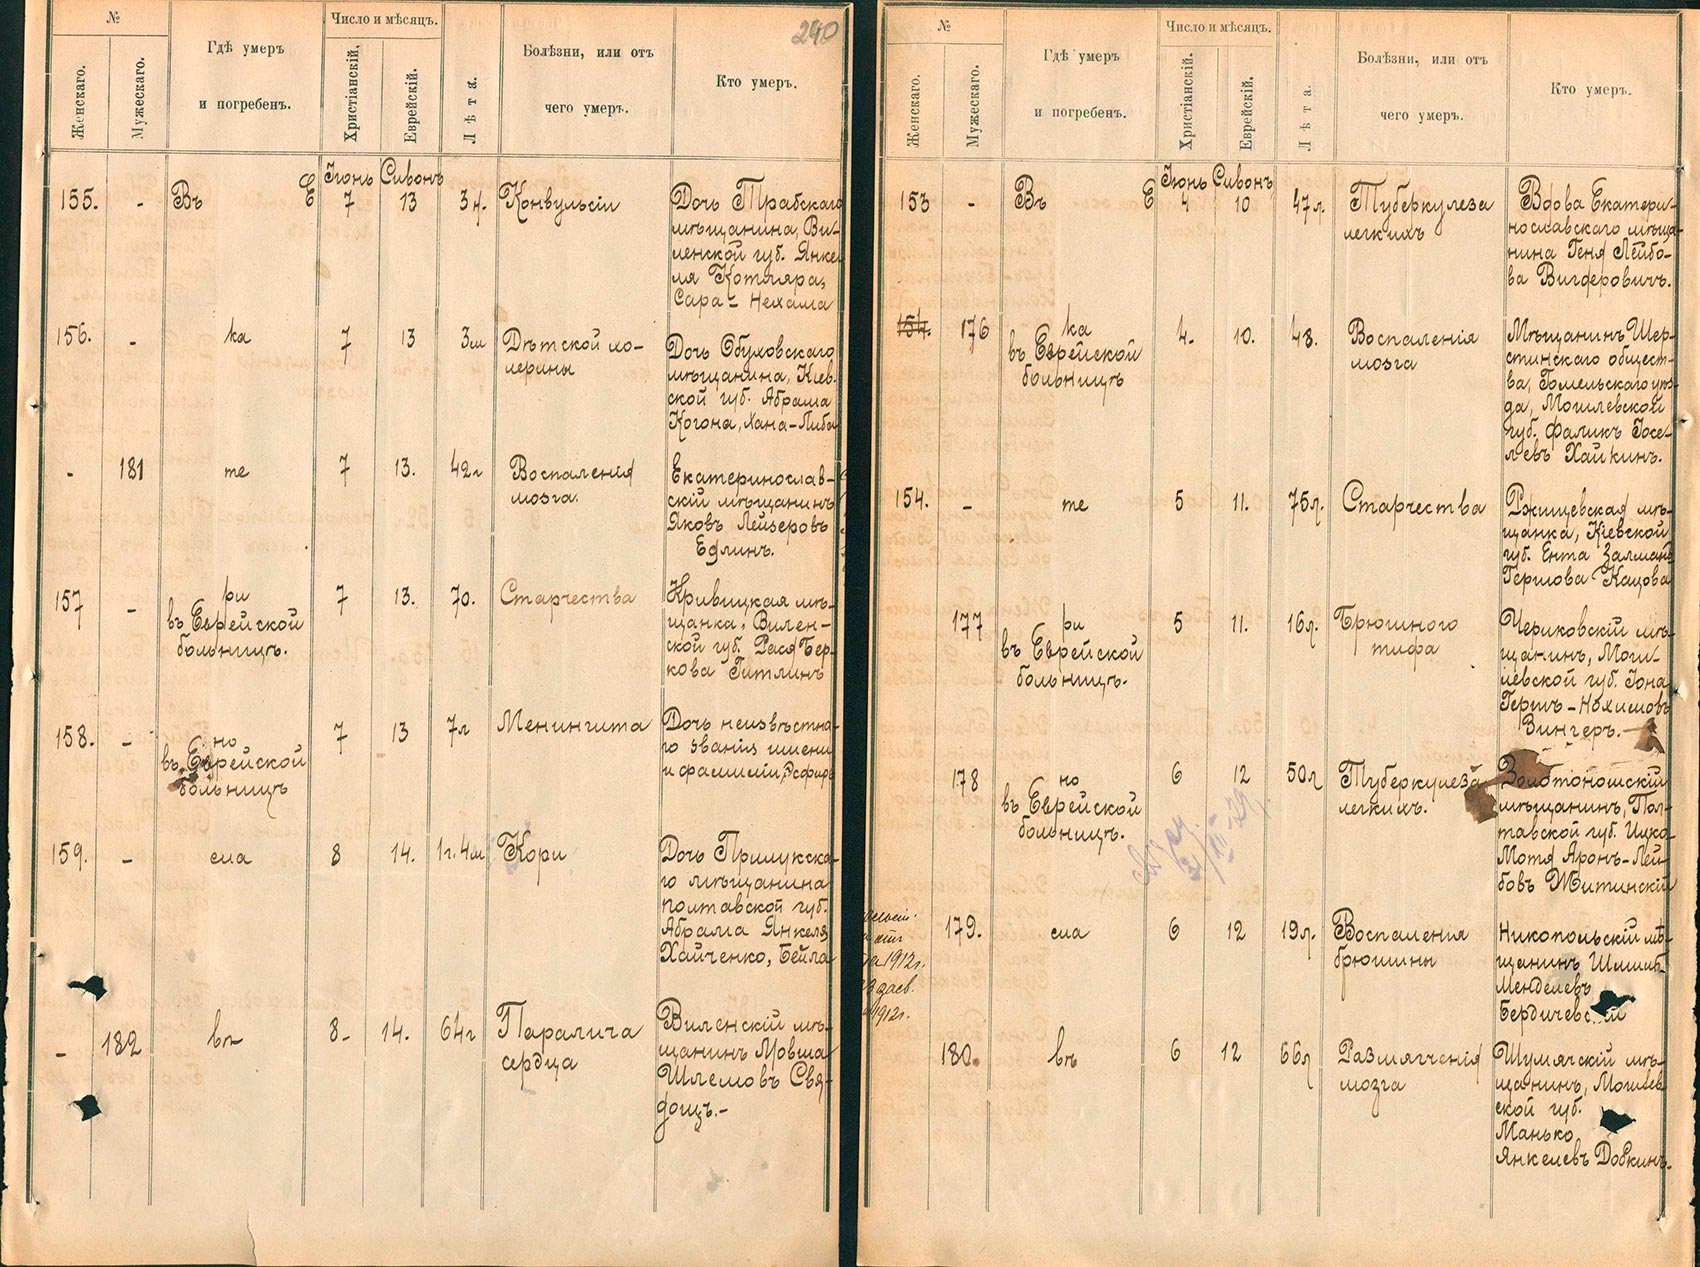 240
№
Женскаго.
Мужескаго.
Гдѣ умеръ
и погребенъ.
Число и мѣсяцъ.
Христіанскій.
Еврейскій.
Лѣта.
Болѣзни, или отъ
чего умеръ.
Кто умеръ.
Іюнь Сивонъ
155. - Въ Е 7 13 3 д. Конвульсіи
Дочь Трабскаго
мѣщанина, Ви-
ленской губ. Янке-
ля Котляра,
Сара-Нехама
156. - ка 7 13 3м Дѣтской хо-
лерины
Дочь Обуховскаго
мѣщанина, Кіев.
ской губ. Абрама
Когона, Хана-Либа
- 181 те 7 13. 42г Воспаленія
мозга.
Екатеринослав-
скій мѣщанинъ
Яковъ Лейзеровъ
Едлинъ.
157 - ри 7 13. 70. Старчества
въ Еврейской
больницѣ.
Кривицкая мѣ-
щанка, Вилен-
ской губ. Рася Бер-
кова Гитлинъ
158. - но 7 13 7л Менингита
въ Еврейской
больницѣ
Дочь неизвѣстна-
го званія имени
и фамиліи, Эсфирь
159. - сла 8 14. 1г. 4м Кори
Дочь Прилукска-
го мѣщанина
Полтавской губ.
Абрама Янкеля
Хайченко, Бейла
- 182 въ 8- 14. 64г Паралича
сердца
Виленскій мѣ-
щанинъ Мовша
Шлемовъ Свя-
дощъ.-
№
Женскаго.
Мужескаго.
Гдѣ умеръ
и погребенъ.
Число и мѣсяцъ.
Христіанскій.
Еврейскій.
Лѣта.
Болѣзни, или отъ
чего умеръ.
Кто умеръ.
Іюнь Сивонъ
153 - Въ Е 4 10 47л. Туберкулеза
легкихъ
Вдова Екатери-
нославскаго мѣща-
нина Геня Лейбо-
ва Вигдеровичъ.
154. 176 ка 4. 10. 48. Воспаленія
мозга
въ Еврейской
больницѣ
Мѣщанинъ Шер-
стинскаго общест-
ва, Гомельскаго уѣз-
да, Могилевской
губ. Фаликъ Іосе-
левъ Хайкинъ.
154. - те 5 11. 75л. Старчества
Ржищевская мѣ-
щанка, Кіевской
губ. Ента Залмань
Гершова Кацова
177 ри 5 11. 16л. Брюшного
тифа
въ Еврейской
больницѣ.
Чериковскій мѣ-
щанинъ, Моги-
левской губ. Іона
Гершъ-Нохимовъ
Зингеръ.-
178 но 6 12 50л Туберкулеза
легкихъ.
въ Еврейской
больницѣ.
Золотоношскій
мѣщанинъ, Пол-
тавской губ. Ицко-
Мотя Аронъ-Лей-
бовъ Житинскій
179. сла 6 12 19л. Воспаления
брюшины
1912г.
засв.
1912г.
Никопольскій мѣ-
щанинъ
Менделевъ
Бердичевскій
180. въ 6 12 66л Размягченія
мозга
Шумячскій мѣ-
щанинъ, Могилев
ской губ.
Манько
Янкелевъ Добкинъ.